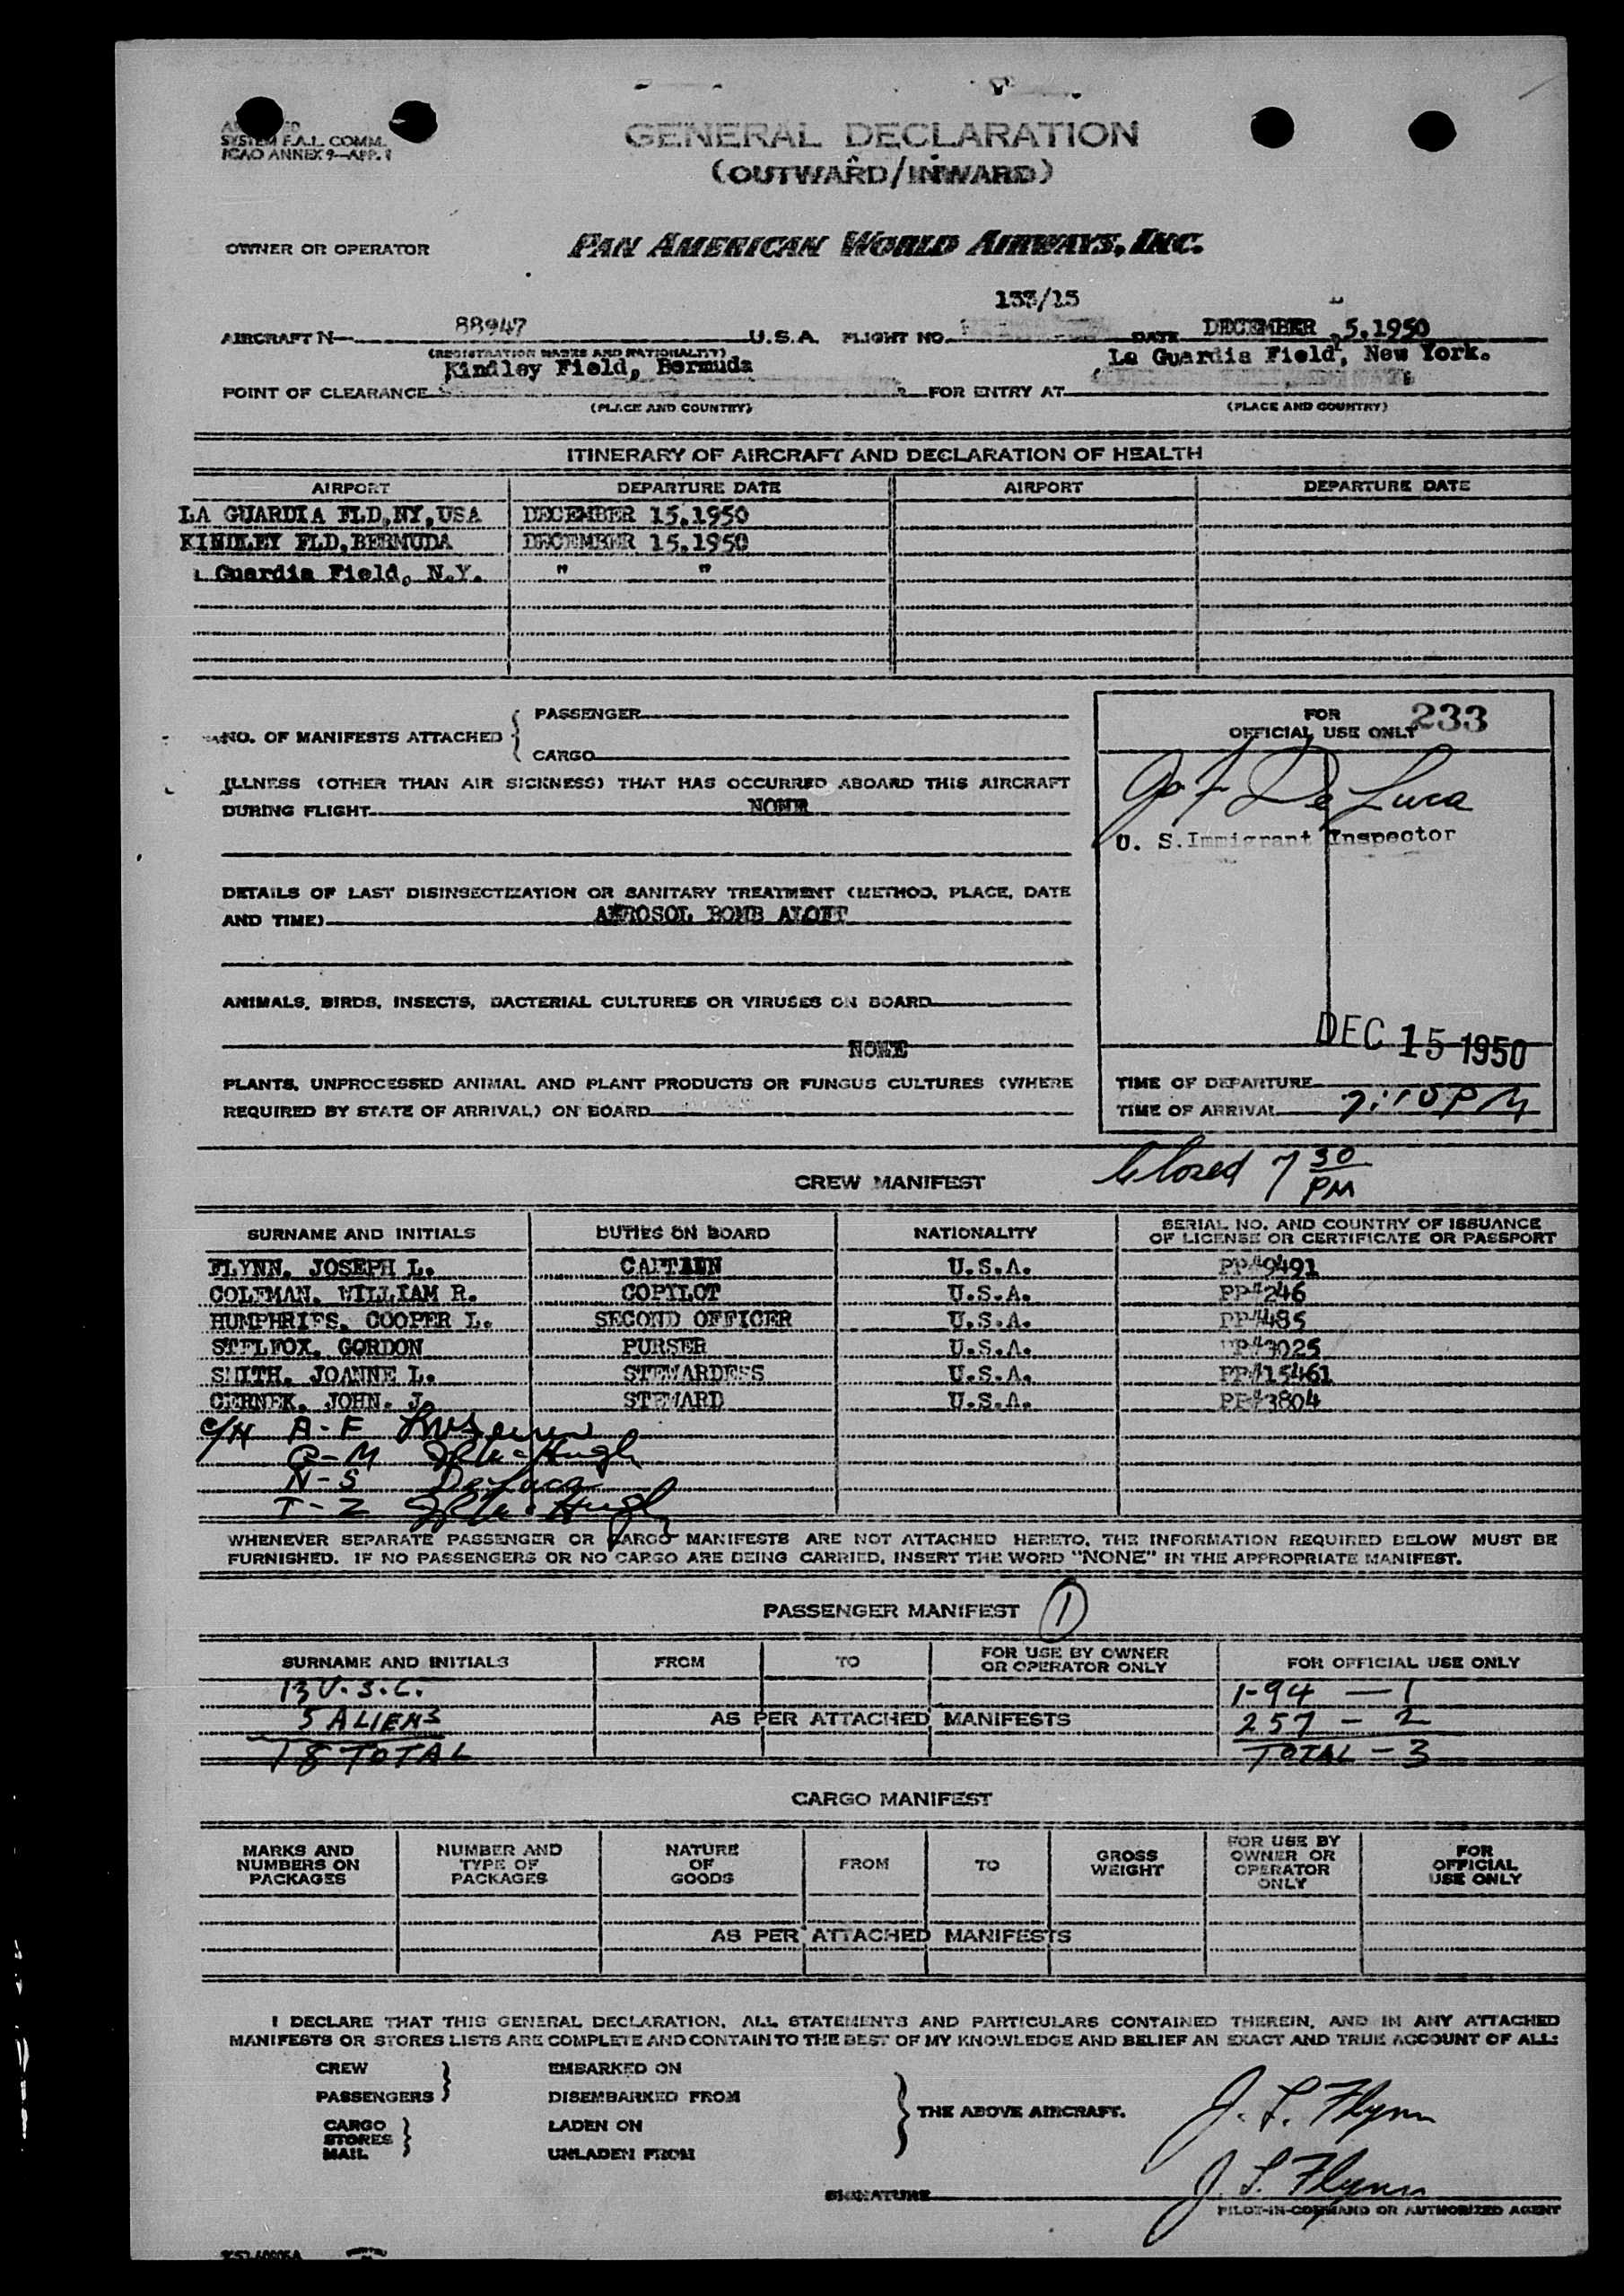 SYSTEM F.A.L. COMM.
ICAO ANNEX 9—APP. 1
GENERAL DECLARATION
(OUTWARD/INWARD)
OWNER OR OPERATOR PAN AMERICAN WORLD AIRWAYS, INC.
133/15
AIRCRAFT N— 88947 U.S.A. FLIGHT NO. DATE DECEMBER 5.1950
(REGISTRATION MARKS AND NATIONALITY)
Kindley Field, Bermuda La Guardia Field, New York.
POINT OF CLEARANCE FOR ENTRY AT
(PLACE AND COUNTRY) (PLACE AND COUNTRY)
ITINERARY OF AIRCRAFT AND DECLARATION OF HEALTH
AIRPORT DEPARTURE DATE AIRPORT DEPARTURE DATE
LA GUARDIA FLD,NY,USA DECEMBER 15.1950
KINDLEY FLD,BERMUDA DECEMBER 15.1950
Guardia Field, N.Y. " "
NO. OF MANIFESTS ATTACHED { PASSENGER
CARGO
FOR
OFFICIAL USE ONLY 233
ILLNESS (OTHER THAN AIR SICKNESS) THAT HAS OCCURRED ABOARD THIS AIRCRAFT
DURING FLIGHT NONE
De Luca
U. S. Immigrant Inspector
DETAILS OF LAST DISINSECTIZATION OR SANITARY TREATMENT (METHOD, PLACE, DATE
AND TIME) AEROSOL BOMB ALOFT
ANIMALS, BIRDS, INSECTS, BACTERIAL CULTURES OR VIRUSES ON BOARD
NONE
DEC 15 1950
PLANTS, UNPROCESSED ANIMAL AND PLANT PRODUCTS OR FUNGUS CULTURES (WHERE
REQUIRED BY STATE OF ARRIVAL) ON BOARD
TIME OF DEPARTURE
TIME OF ARRIVAL 7:10 PM
Closed 7 30 PM
CREW MANIFEST
SURNAME AND INITIALS DUTIES ON BOARD NATIONALITY SERIAL NO. AND COUNTRY OF ISSUANCE
OF LICENSE OR CERTIFICATE OR PASSPORT
FLYNN, JOSEPH L. CAPTAIN U.S.A. PP#9491
COLEMAN, WILLIAM R. COPILOT U.S.A. PP#246
HUMPHRIES, COOPER L. SECOND OFFICER U.S.A. PP#485
STELFOX, GORDON PURSER U.S.A. PP#3025
SMITH, JOANNE L. STEWARDESS U.S.A. PP#15461
CERNEK, JOHN. J. STEWARD U.S.A. PP#3804
C/H A-F
G-M McHugh
N-S De Luca
T-Z McHugh
WHENEVER SEPARATE PASSENGER OR CARGO MANIFESTS ARE NOT ATTACHED HERETO, THE INFORMATION REQUIRED BELOW MUST BE
FURNISHED. IF NO PASSENGERS OR NO CARGO ARE BEING CARRIED, INSERT THE WORD "NONE" IN THE APPROPRIATE MANIFEST.
PASSENGER MANIFEST 1
SURNAME AND INITIALS FROM TO FOR USE BY OWNER
OR OPERATOR ONLY FOR OFFICIAL USE ONLY
13 U.S.C. 1-94 — 1
5 ALIENS AS PER ATTACHED MANIFESTS 257 - 2
18 TOTAL TOTAL - 3
CARGO MANIFEST
MARKS AND
NUMBERS ON
PACKAGES
NUMBER AND
TYPE OF
PACKAGES
NATURE
OF
GOODS
FROM
TO
GROSS
WEIGHT
FOR USE BY
OWNER OR
OPERATOR
ONLY
FOR
OFFICIAL
USE ONLY
AS PER ATTACHED MANIFESTS
I DECLARE THAT THIS GENERAL DECLARATION, ALL STATEMENTS AND PARTICULARS CONTAINED THEREIN, AND IN ANY ATTACHED
MANIFESTS OR STORES LISTS ARE COMPLETE AND CONTAIN TO THE BEST OF MY KNOWLEDGE AND BELIEF AN EXACT AND TRUE ACCOUNT OF ALL:
CREW EMBARKED ON
PASSENGERS DISEMBARKED FROM
CARGO LADEN ON
STORES
MAIL UNLADEN FROM
THE ABOVE AIRCRAFT.
J. L. Flynn
SIGNATURE J. L. Flynn
PILOT-IN-COMMAND OR AUTHORIZED AGENT